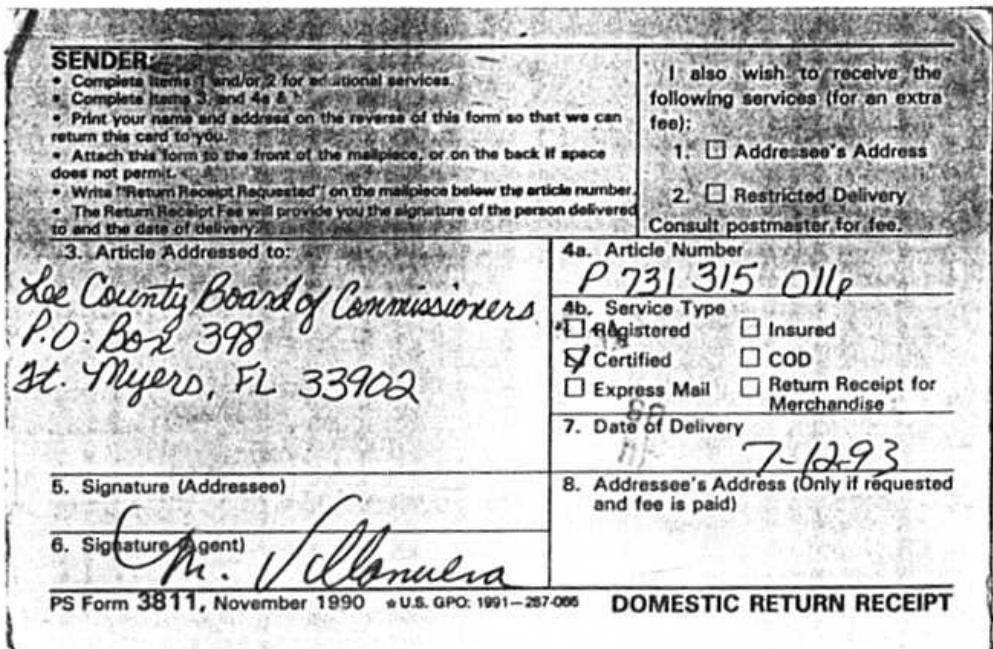 SENDER:
• Complete items 1 and/or 2 for additional services.
• Complete items 3, and 4a &
• Print your name and address on the reverse of this form so that we can
return this card to you.
• Attach this form to the front of the mailpiece, or on the back if space
does not permit.
• Write "Return Receipt Requested" on the mailpiece below the article number.
• The Return Receipt Fee will provide you the signature of the person delivered
to and the date of delivery.
I also wish to receive the
following services (for an extra
fee):
1. ☐ Addressee's Address
2. ☐ Restricted Delivery
Consult postmaster for fee.
3. Article Addressed to:
Lee County Board of Commissioners
P.O. Box 398
Ft. Myers, FL 33902
4a. Article Number
P 731 315 016
4b. Service Type
☐ Registered ☐ Insured
☑ Certified ☐ COD
☐ Express Mail ☐ Return Receipt for
Merchandise
7. Date of Delivery
7-12-93
5. Signature (Addressee)
8. Addressee's Address (Only if requested
and fee is paid)
6. Signature (Agent)
M. Villanueva
PS Form 3811, November 1990 ☆ U.S. GPO: 1991—287-066 DOMESTIC RETURN RECEIPT